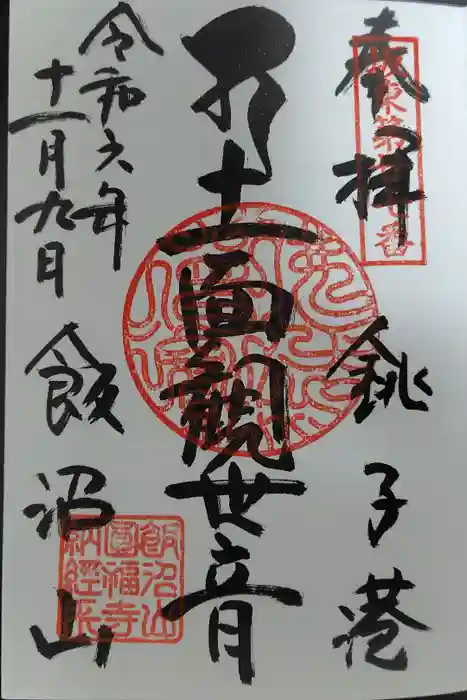 奉拝 銚子港
坂東第廿七番
十一面観世音
令和六年
十一月九日
飯沼山
飯沼山
圓福寺
納經